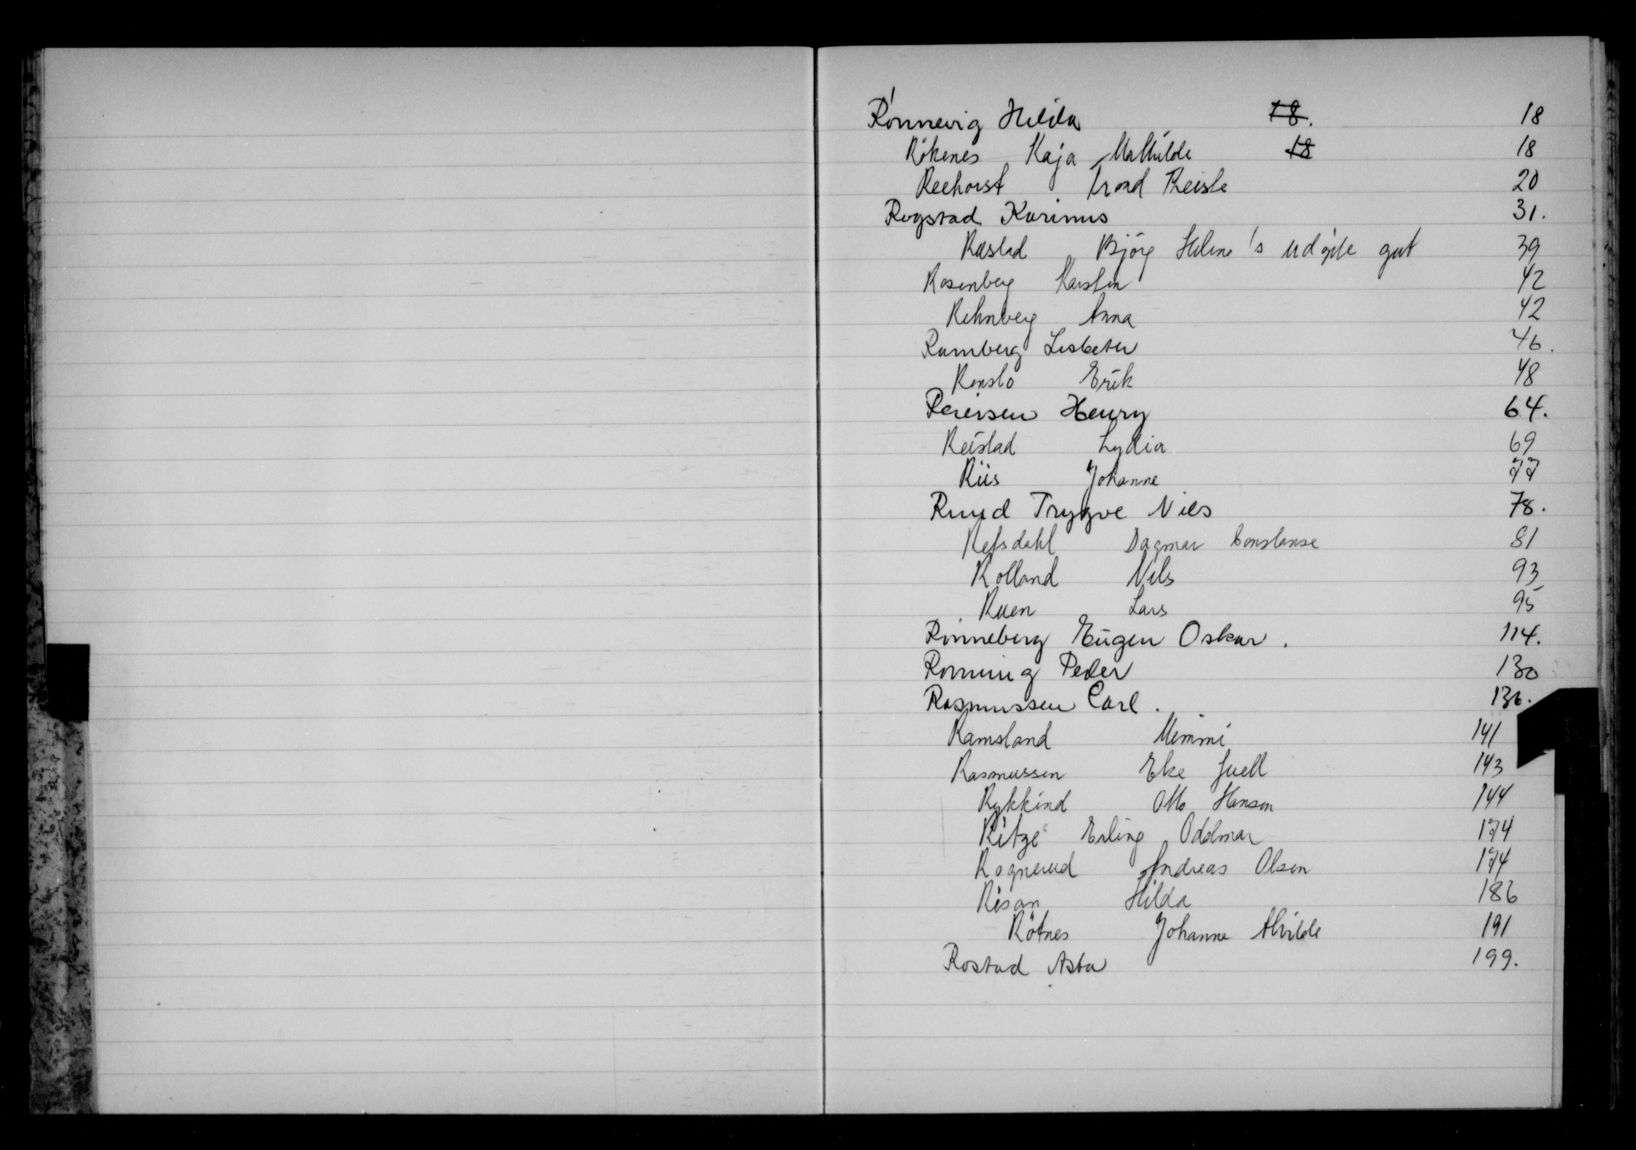 Rönnevig Hilda 18. 18
Røkenes Kaja Mathilde 18 18
Reehorst Trond Reiste 20
Rogstad Karinus 31.
Rastad Bjørg Helene's udøpte gut 39
Rosenberg Karsten 42
Rehnberg Anna 42
Ramberg Lisbeter 46.
Renslo Erik 48
Reiersen Henry 64.
Reistad Lydia 69
Riis Johanne 77
Ruud Trygve Nils 78.
Refsdahl Dagmar Constanse 81
Rolland Nils 93
Ruen Lars 95
Rinneberg Eugen Oskar. 114.
Ronning Peder 130
Rasmussen Carl. 136.
Ramsland Mimmi 141
Rasmussen Eke Juell 143
Rykkind Otto Hansen 144
Ritze Erling Oddmar 174
Rognerud Andreas Olsen 174
Risan Hilda 186
Røtnes Johanne Alvilde 191
Rostad Asta 199.